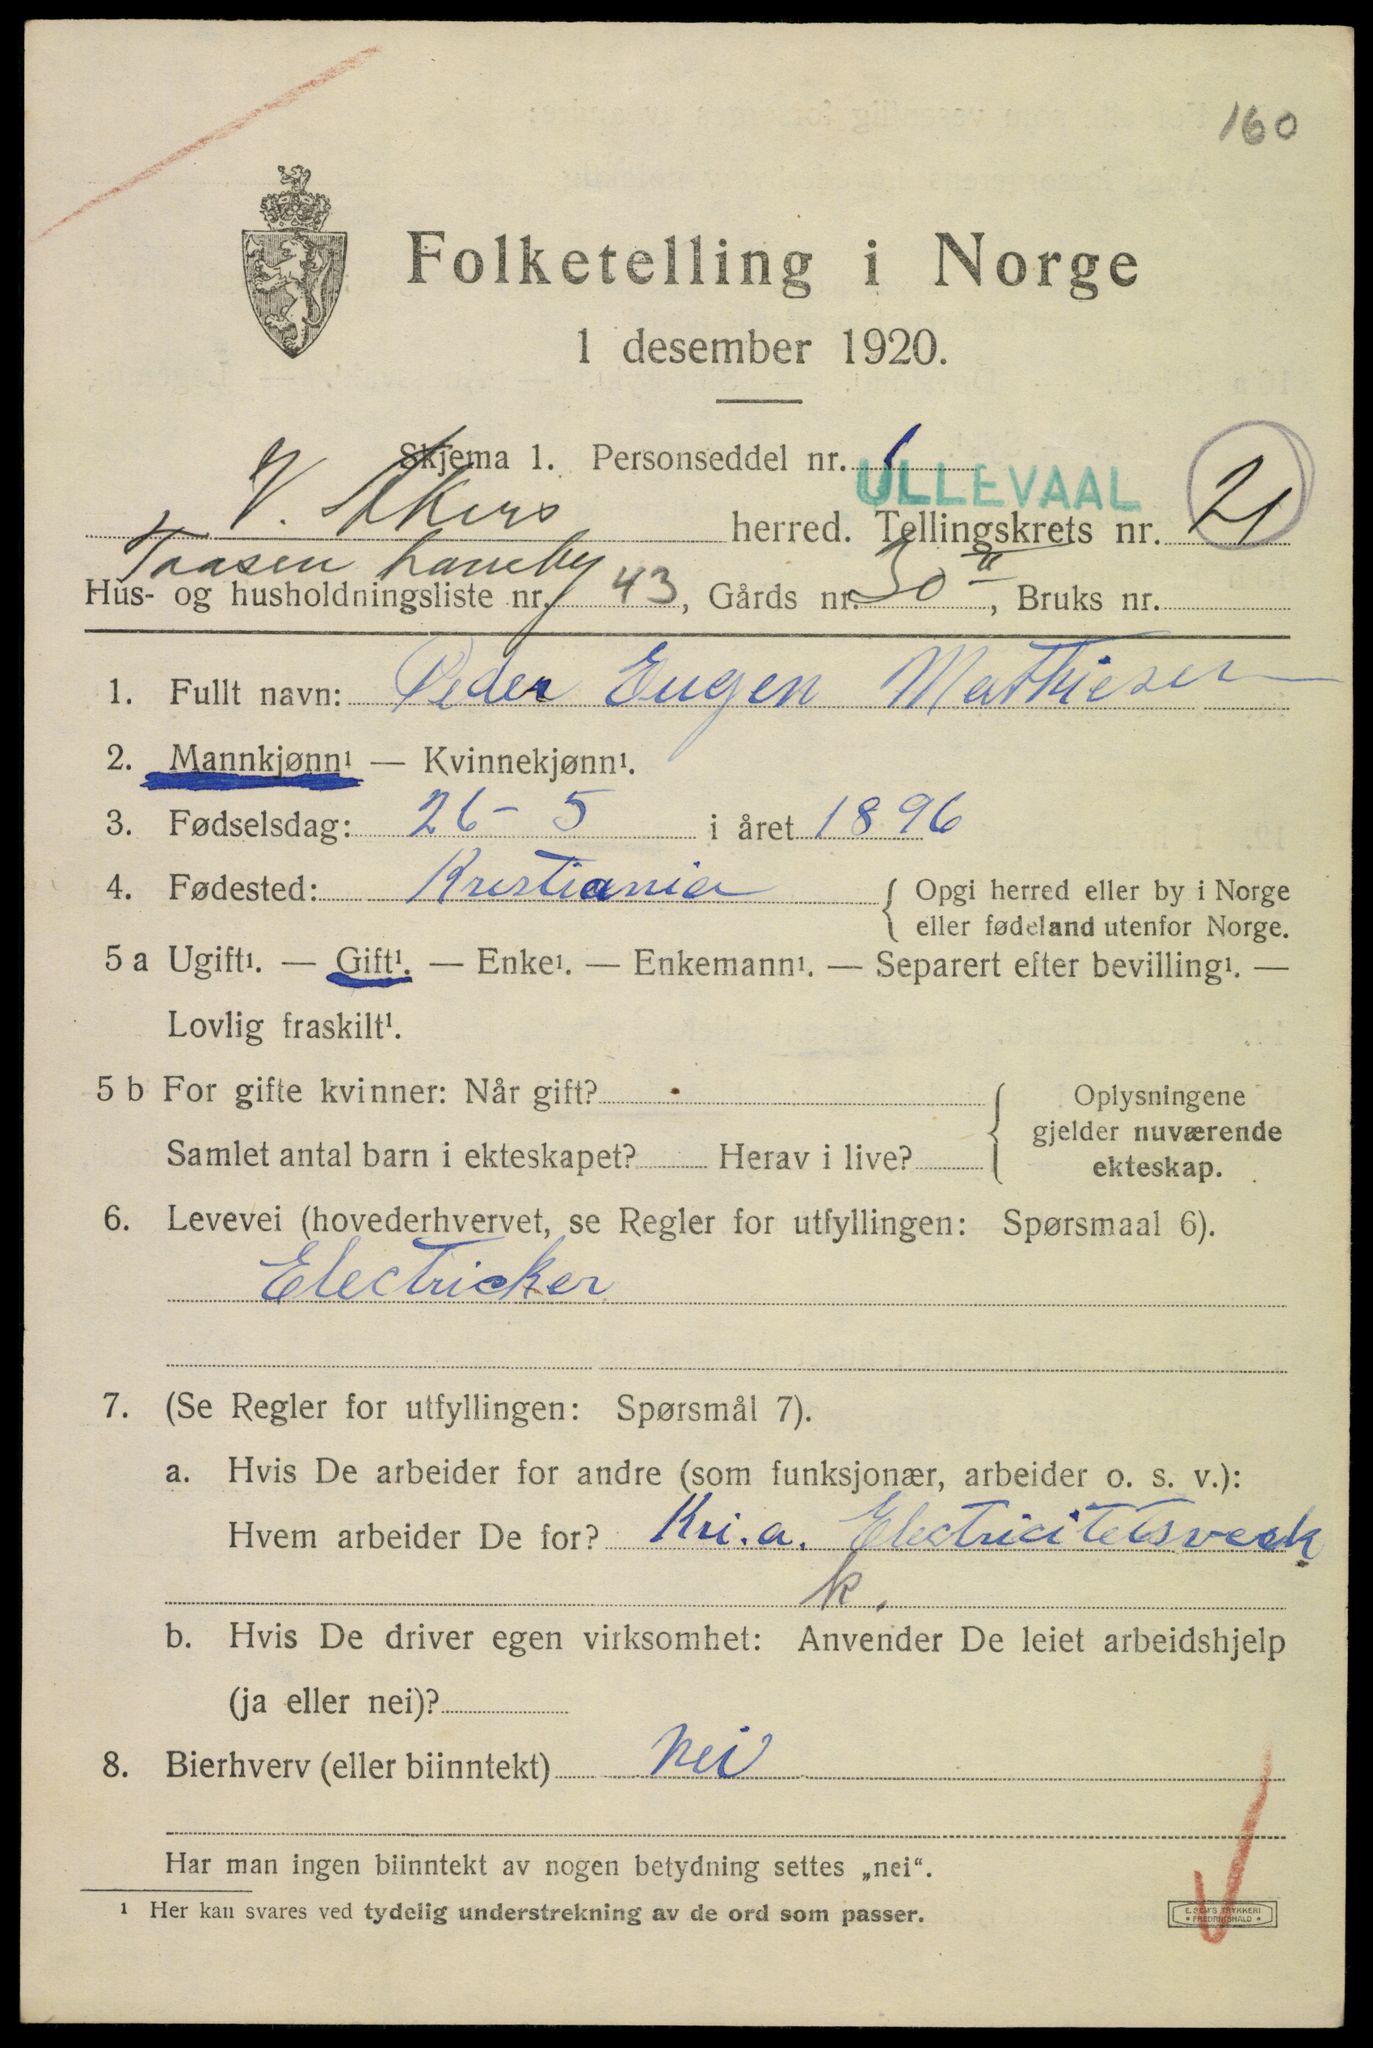 160
Folketelling i Norge
1 desember 1920.
Skjema 1. Personseddel nr. 1
ULLEVAAL
V. Akers herred. Tellingskrets nr. 21
Taasen haveby
Hus- og husholdningsliste nr. 43, Gårds nr. 30, Bruks nr.
1. Fullt navn: Peder Eugen Mathiesen
2. Mannkjønn¹ — Kvinnekjønn¹.
3. Fødselsdag: 26 - 5 i året 1896
4. Fødested: Kristiania { Opgi herred eller by i Norge
eller fødeland utenfor Norge.
5 a Ugift¹. — Gift¹. — Enke¹. — Enkemann¹. — Separert efter bevilling¹. —
Lovlig fraskilt¹.
5 b For gifte kvinner: Når gift?
Samlet antal barn i ekteskapet? Herav i live?
Oplysningene
gjelder nuværende
ekteskap.
6. Levevei (hovederhvervet, se Regler for utfyllingen: Spørsmaal 6).
Electricker
7. (Se Regler for utfyllingen: Spørsmål 7).
a. Hvis De arbeider for andre (som funksjonær, arbeider o. s. v.):
Hvem arbeider De for? Kri.a. Electricitetsverk
k.
b. Hvis De driver egen virksomhet: Anvender De leiet arbeidshjelp
(ja eller nei)?
8. Bierhverv (eller biinntekt) nei
Har man ingen biinntekt av nogen betydning settes „nei“.
¹ Her kan svares ved tydelig understrekning av de ord som passer.
E. SEM'S TRYKKERI
• FREDRIKSHALD •